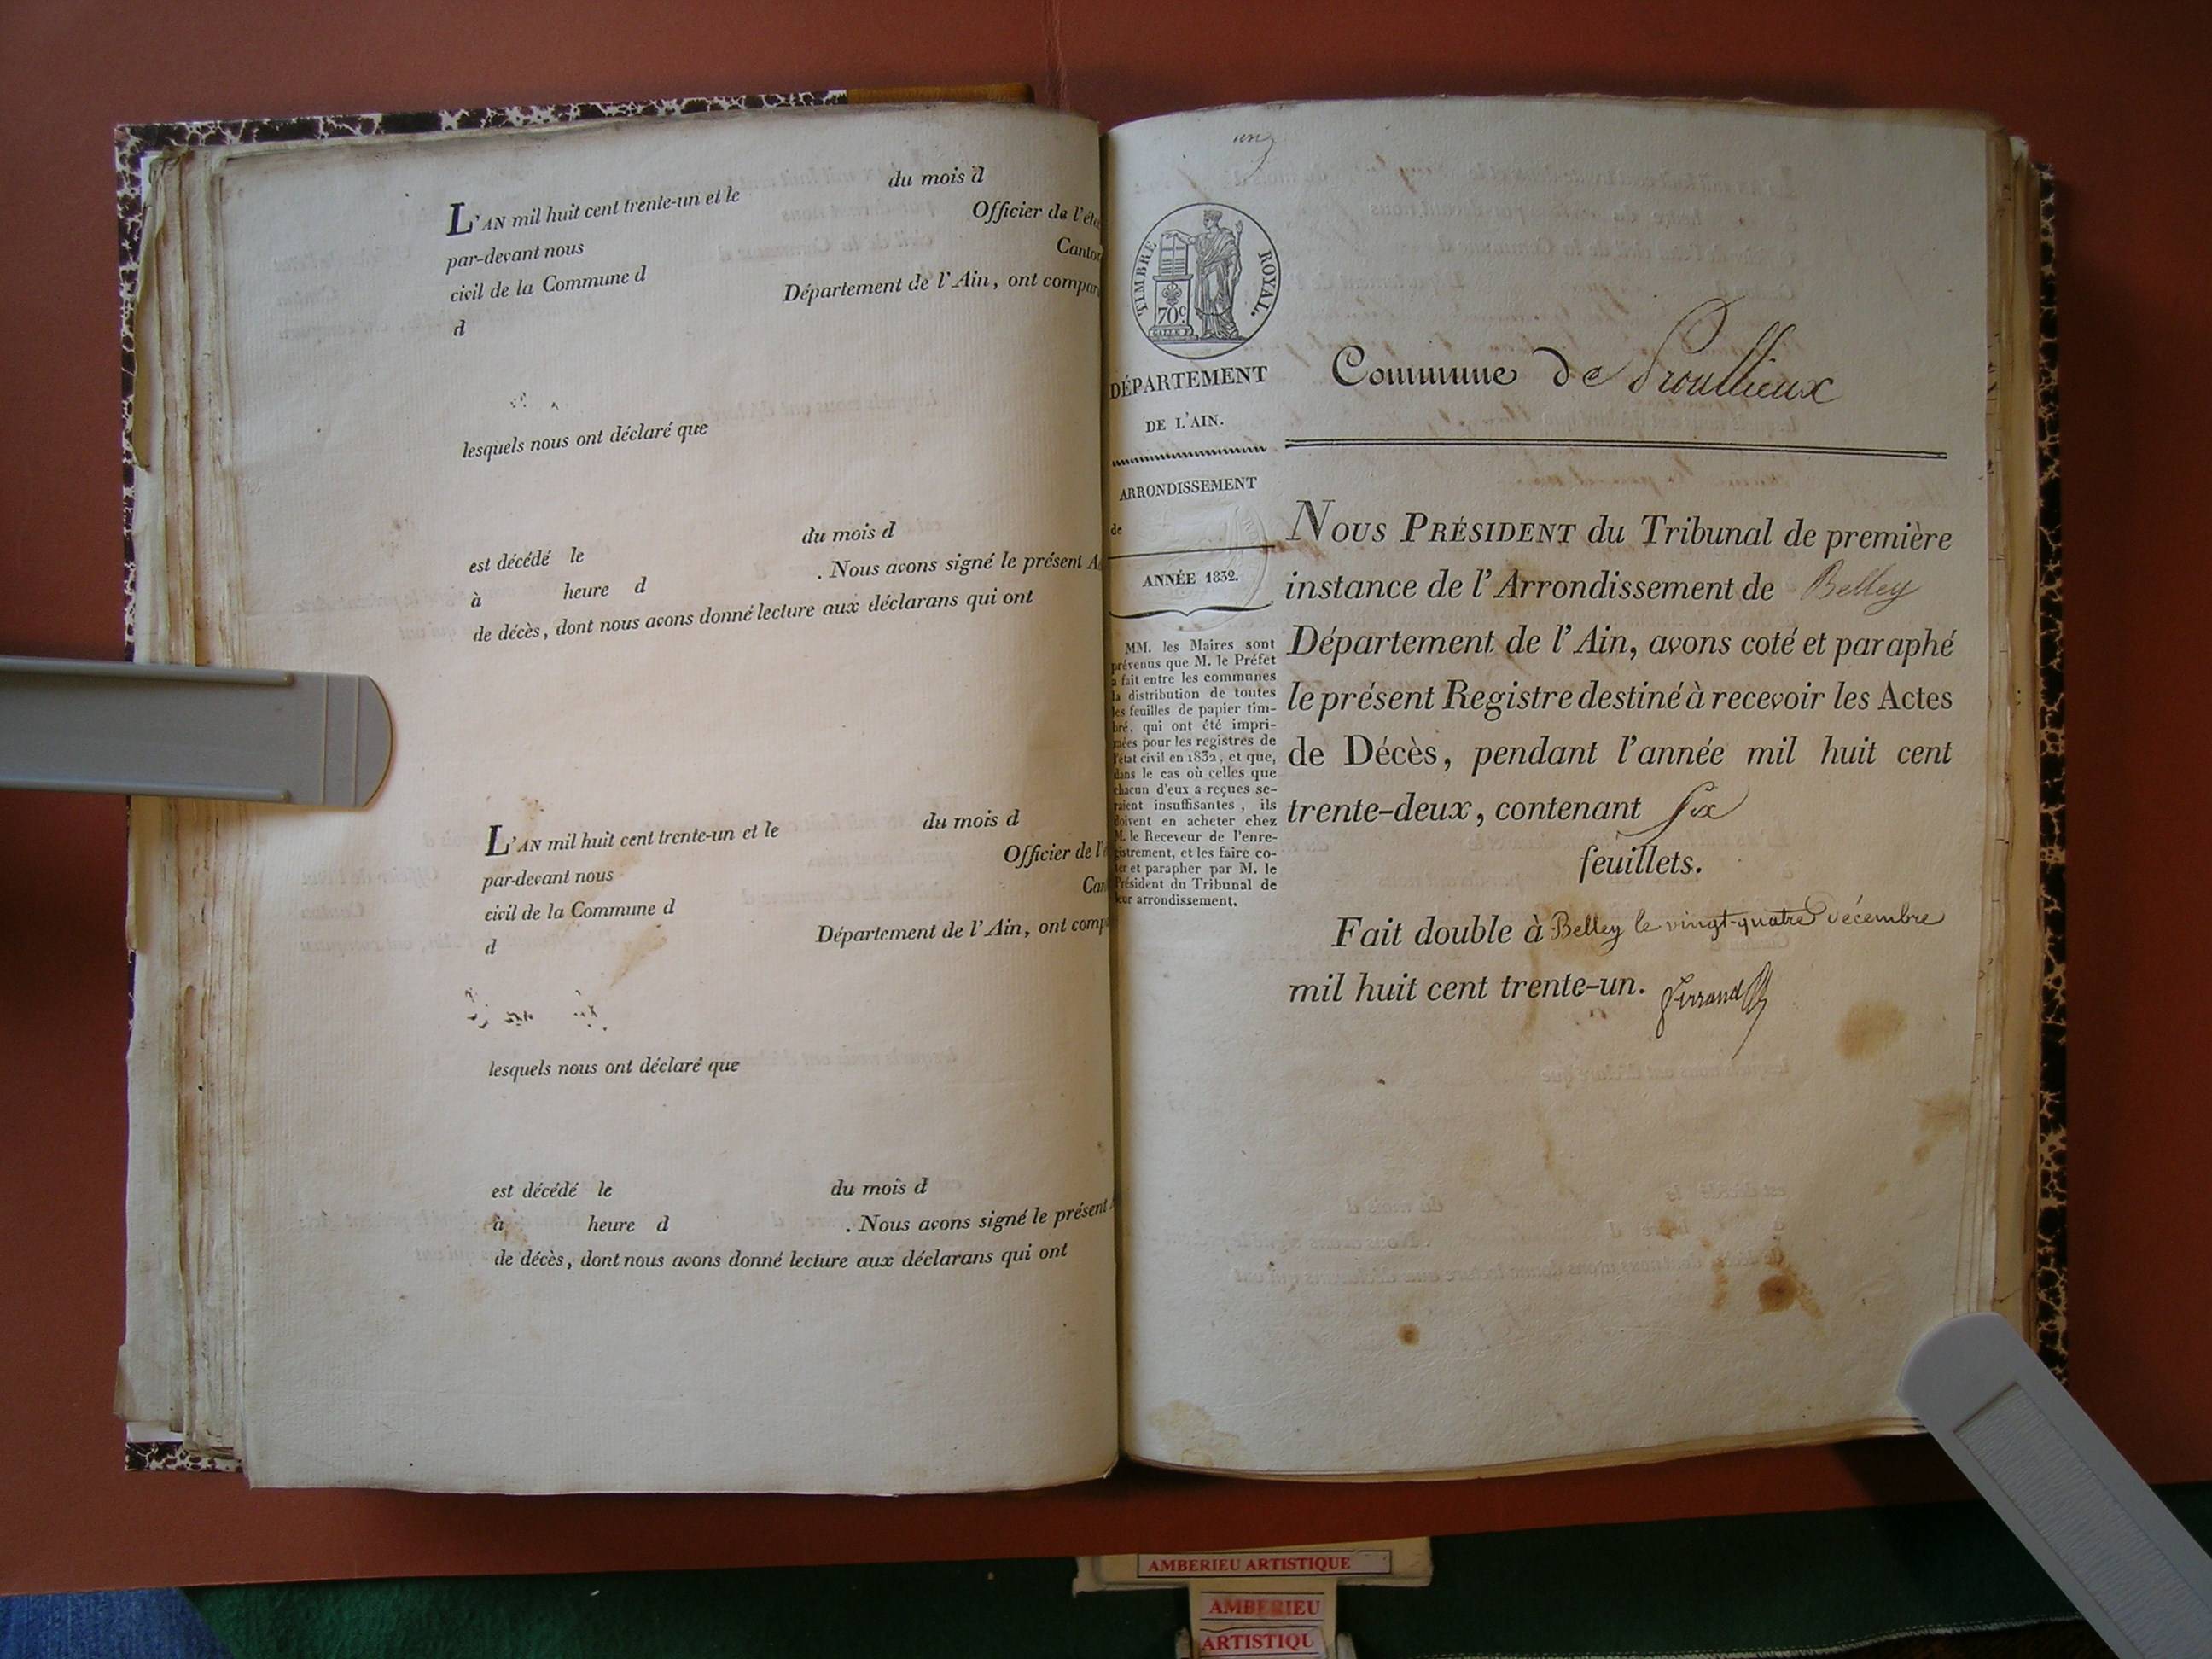 du mois d
L'AN mil huit cent trente-un et le
Officier de l'éta
par-devant nous
Canton
civil de la Commune d
Département de l'Ain, ont compar
d
lesquels nous ont déclaré que
du mois d
est décédé le
. Nous avons signé le présent A
à heure d
de décès, dont nous avons donné lecture aux déclarans qui ont
du mois d
L'AN mil huit cent trente-un et le
Officier de l'é
par-devant nous
Can
civil de la Commune d
Département de l'Ain, ont comp
d
lesquels nous ont déclaré que
est décédé le du mois d
à heure d . Nous avons signé le présent A
de décès, dont nous avons donné lecture aux déclarans qui ont
un
TIMBRE ROYAL.
70c.
DÉPARTEMENT
DE L'AIN.
ARRONDISSEMENT
de
ANNÉE 1832.
MM. les Maires sont
prévenus que M. le Préfet
a fait entre les communes
la distribution de toutes
les feuilles de papier tim-
bré, qui ont été impri-
mées pour les registres de
l'état civil en 1832, et que,
dans le cas où celles que
chacun d'eux a reçues se-
raient insuffisantes, ils
doivent en acheter chez
M. le Receveur de l'enre-
gistrement, et les faire co-
ter et parapher par M. le
Président du Tribunal de
leur arrondissement.
Commune de Proullieux
NOUS PRÉSIDENT du Tribunal de première
instance de l'Arrondissement de Belley
Département de l'Ain, avons coté et paraphé
le présent Registre destiné à recevoir les Actes
de Décès, pendant l'année mil huit cent
trente-deux, contenant Six
feuillets.
Fait double à Belley le vingt-quatre décembre
mil huit cent trente-un. ferrand
AMBERIEU ARTISTIQUE
AMBERIEU
ARTISTIQU